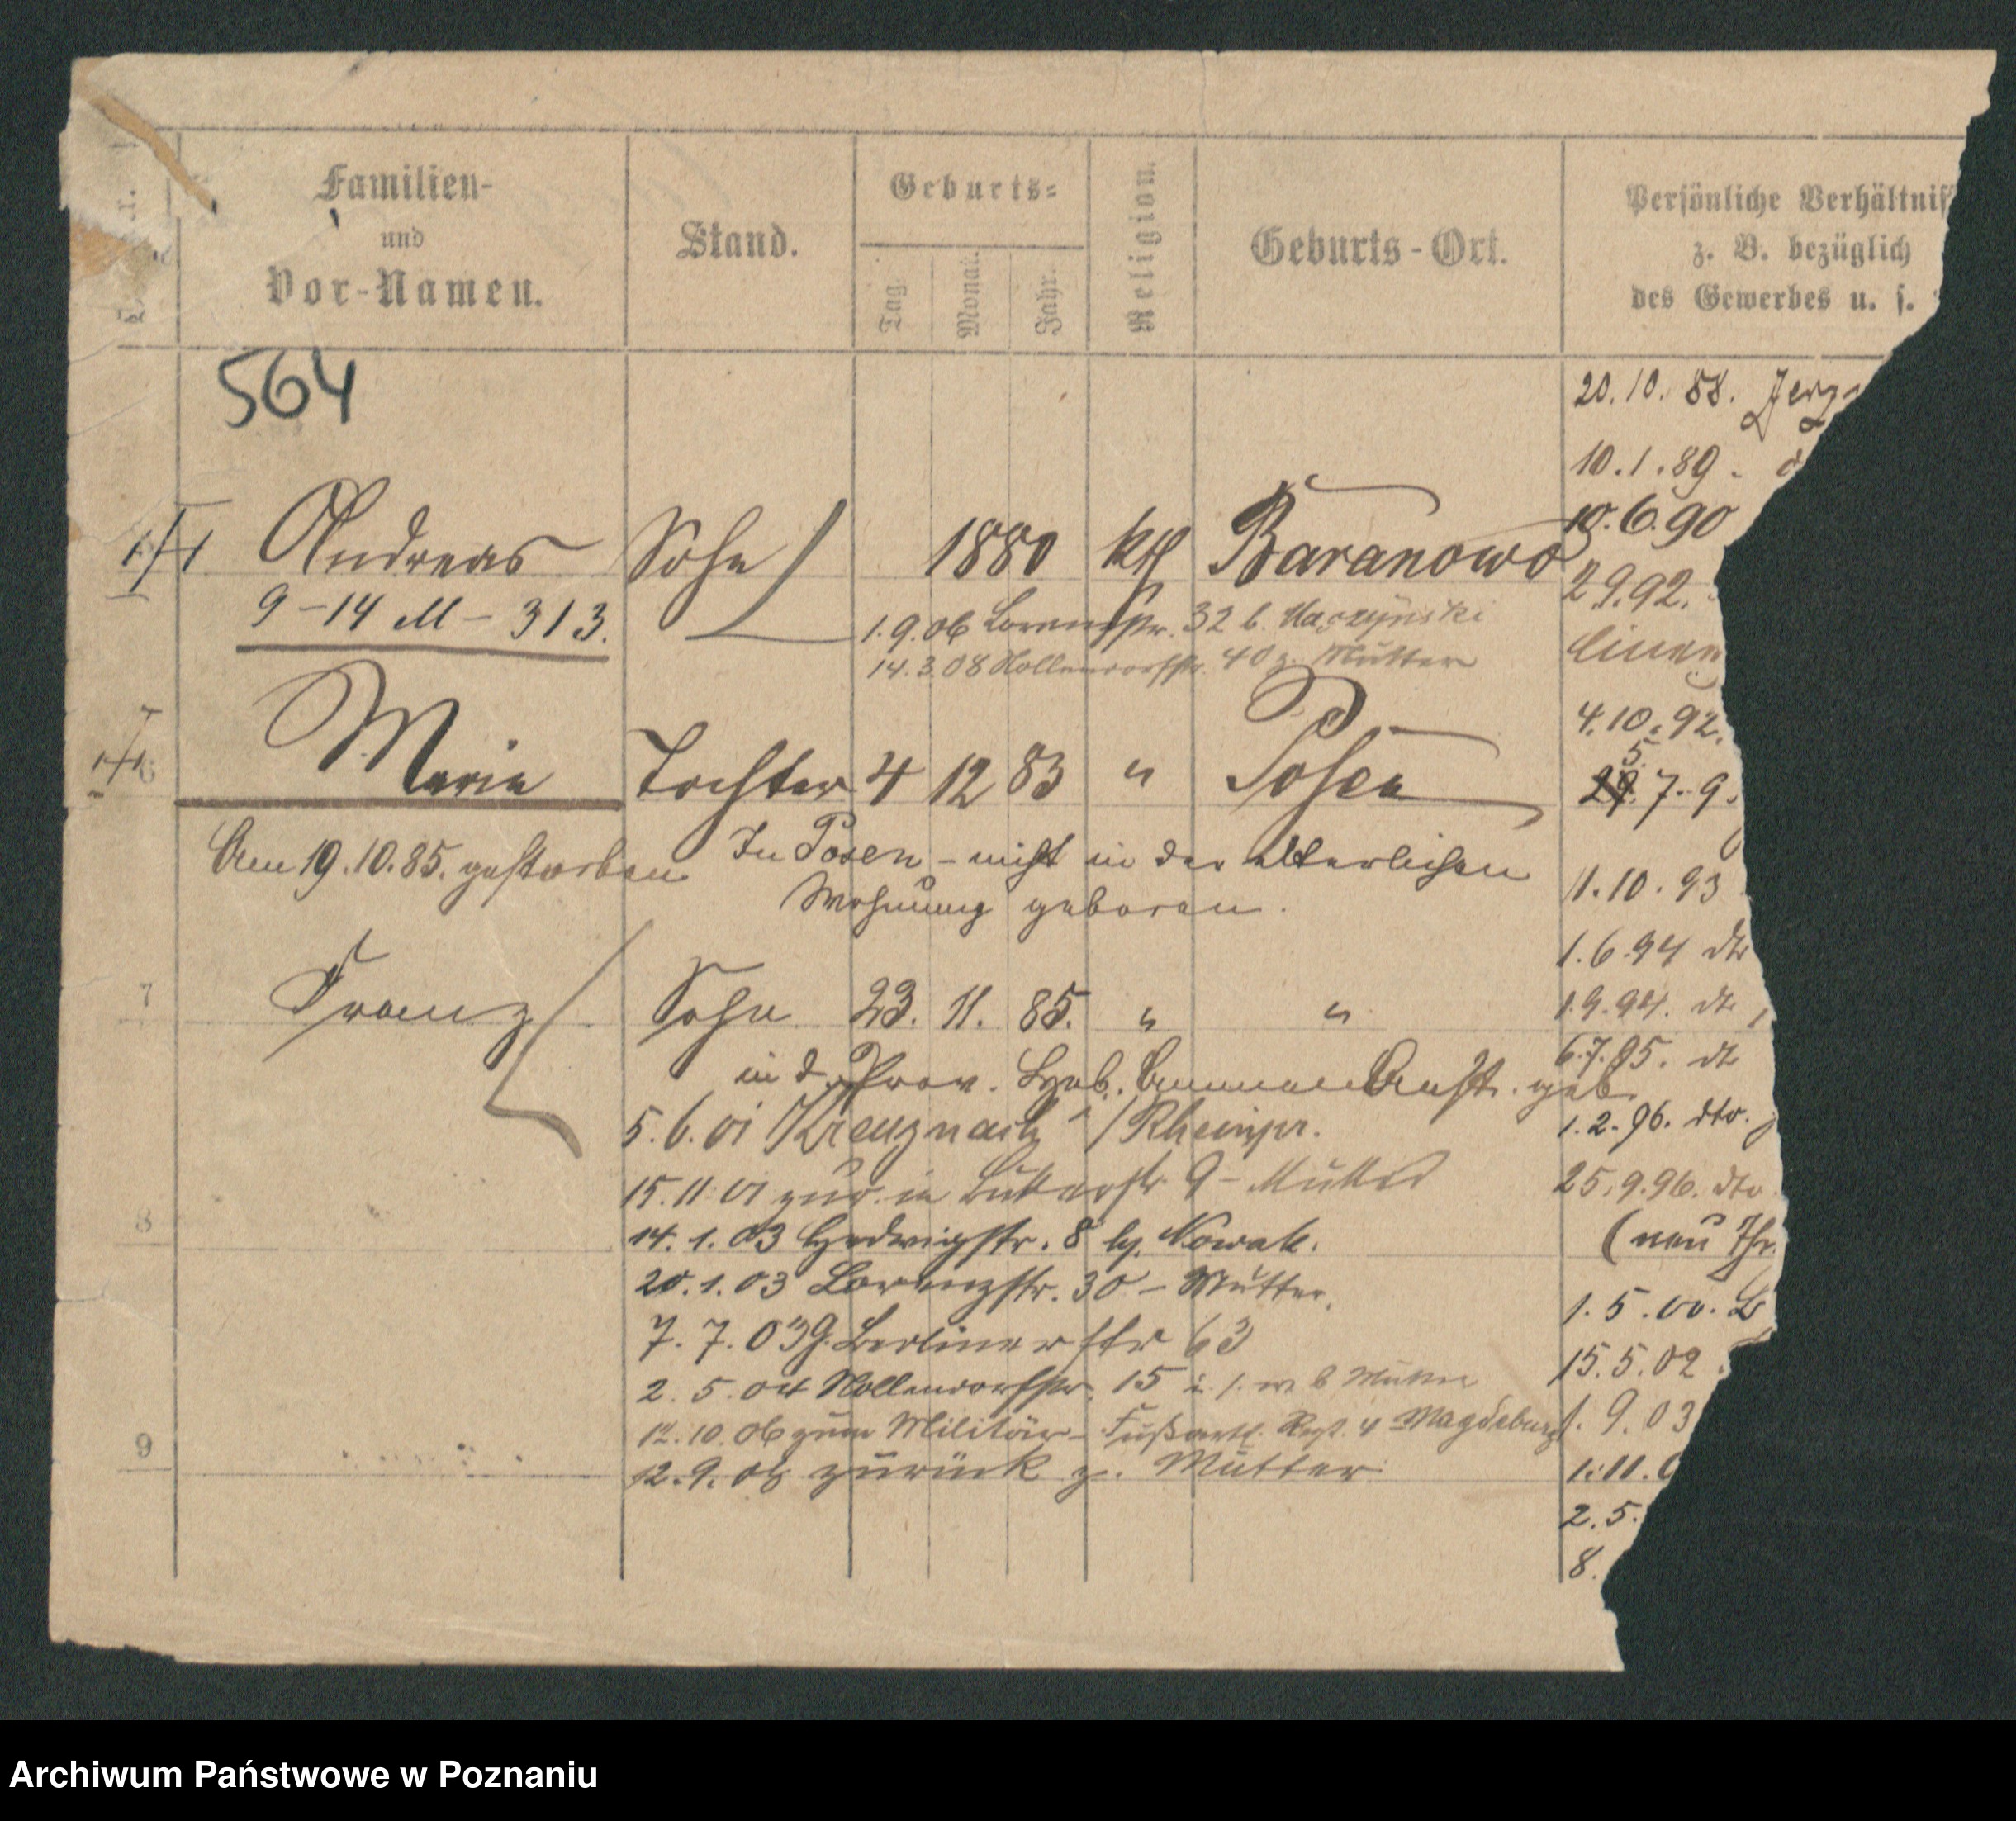 Familien-
und
Vor-Namen.
Stand.
Geburts-
Tag.
Monat.
Jahr.
Religion.
Geburts-Ort.
Persönliche Verhältnis
z. B. bezüglich
des Gewerbes u. s.
564
20.10.88.
10.1.89.
Andreas Sohn 1880 kth Baranowo
10.6.90
9-14 M - 313.
1.9.06 Lorenzstr. 32 b.
2.9.92.
14.3.08 Nollendorfstr. 40 z. Mutter
4.10.92.
Marie Tochter 4 12 83 " Posen
5.
29. 7. 9
Am 19.10.85. gestorben
In Posen - nicht in der elterlichen
Wohnung geboren.
11.10.93
1.6.94 dto
7 Franz Sohn 23. 11. 85. " "
1.9.94. dto
in d. Prov. Heb. Ammen Anst. geb.
6.7.95. dto
5.6.01 Kreuznach / Rheinpr.
1.2.96. dto.
15.11.01 zur. in 9 - Mutter
25.9.96. dto
8
14.1.03 Hedwigstr. 8 b. Nowak.
(neu Thr.
20.1.03 Lorenzstr. 30 - Mutter.
1.5.00.
7.7.03 G. Berlinerstr 63
15.5.02
2.5.04 Nollendorfstr. 15 b Mutter
12.10.06 zum Militär - Fußartl. Regt. 4 Magdeburg
1.9.03
9
12.9.08 zurück z. Mutter
1.11.0
2.5.
8.
Archiwum Państwowe w Poznaniu